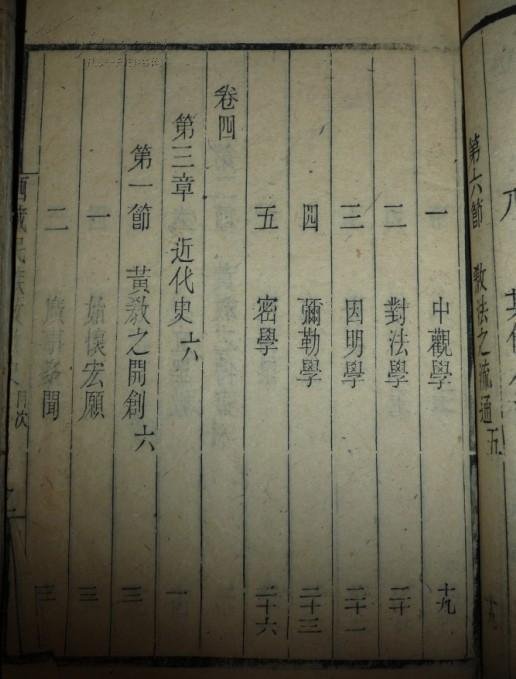 第六節 教法之流通 五
一 中觀學 十九
二 對法學 二十
三 因明學 二十一
四 彌勒學 二十三
五 密學 二十六
卷四
第三章 近代史 六 一
第一節 黃教之開創 六 三
一 始懷宏願 三
二 廣事多聞 三
西藏民族政教史 目次